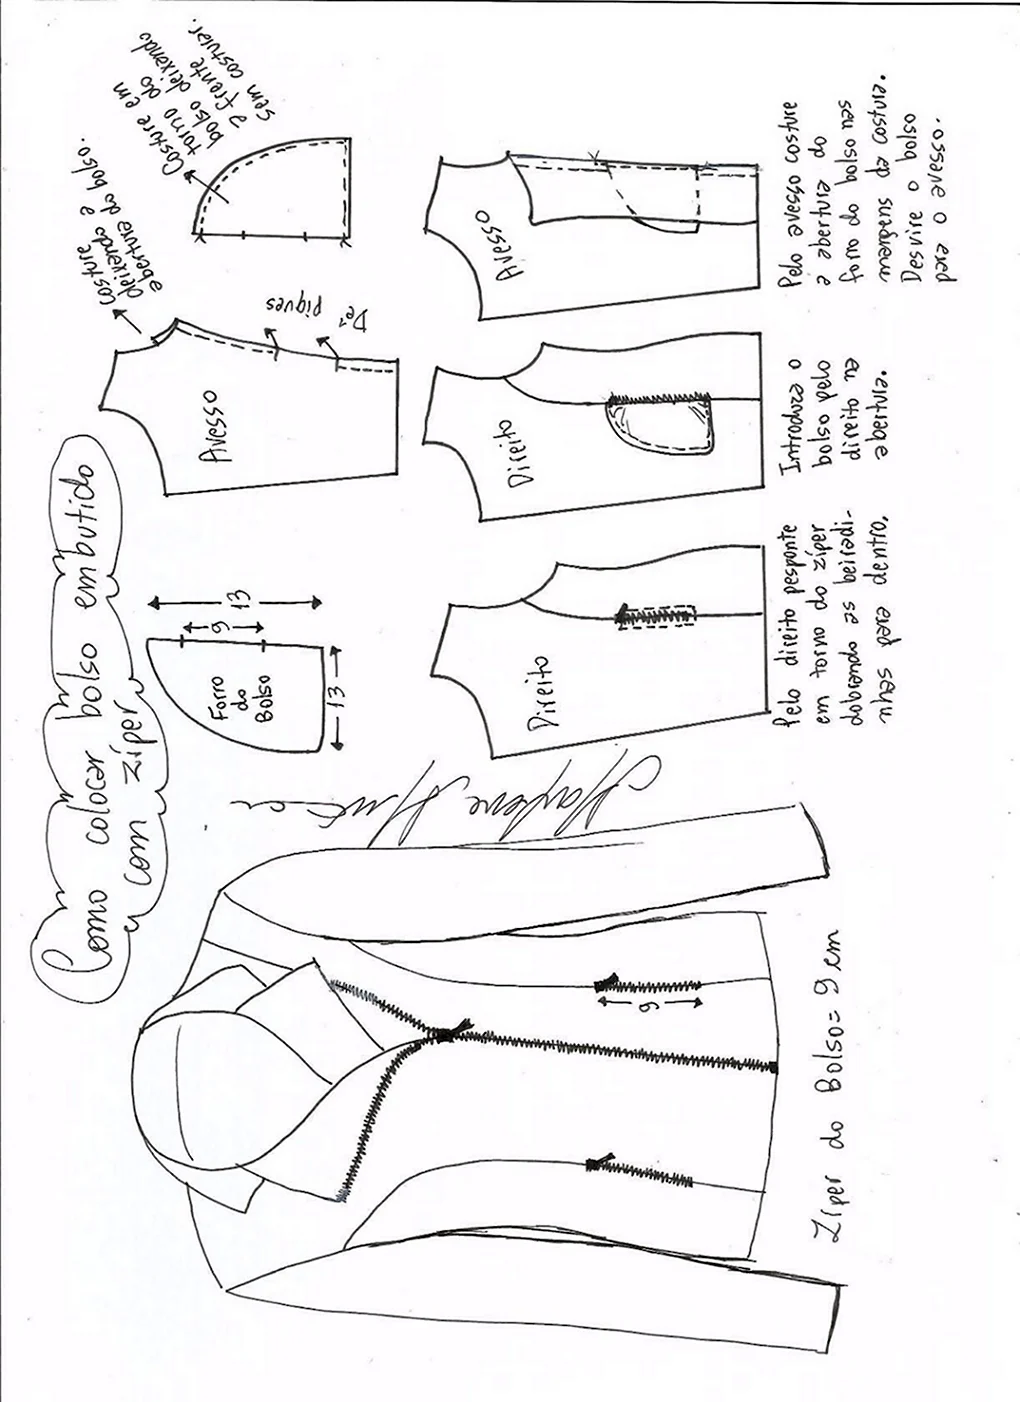 Como colocar bolso embutido
com zíper
Forro
do
Bolso
9
13
13
Avesso
Dê 2
piques
costure
deixando a
abertura do bolso.
Costure em
torno do
bolso deixando
a frente
sem costurar.
Direito
Direito
Avesso
Pelo direito pesponte
em torno do zíper
dobrando as beiradi-
nhas para dentro.
Introduza o
bolso pelo
direito na
abertura.
Pelo avesso costure
a abertura do
forro do bolso nas
margens de costura.
Desvire o bolso
para o avesso.
9
Zíper do Bolso = 9 cm
Marlene Mukai